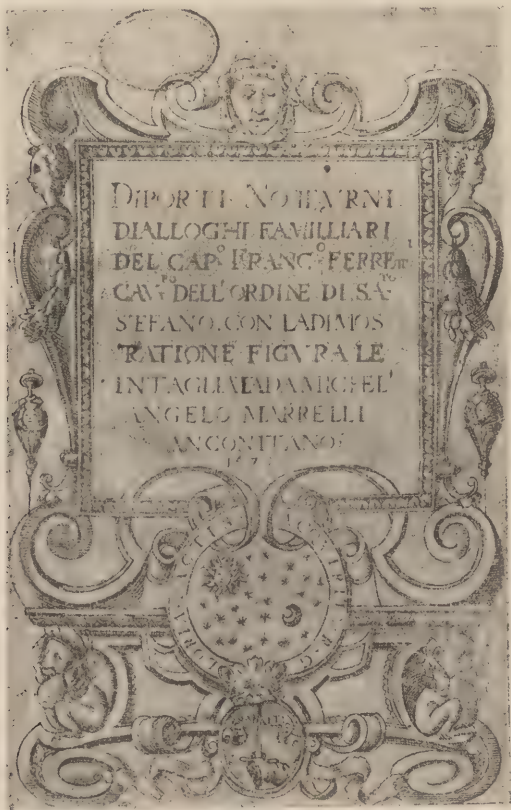 DIPORTI NOTTVRNI
DIALLOGHI FAMILLIARI
DEL CAP.º FRANC.º FERRETTI
CAV.RO DELL'ORDINE DI SA.TO
STEFANO. CON LA DIMOS
TRATIONE FIGVRALE
INTAGLIATA DA MICHEL'
ANGELO MARRELLI
ANCONITANO